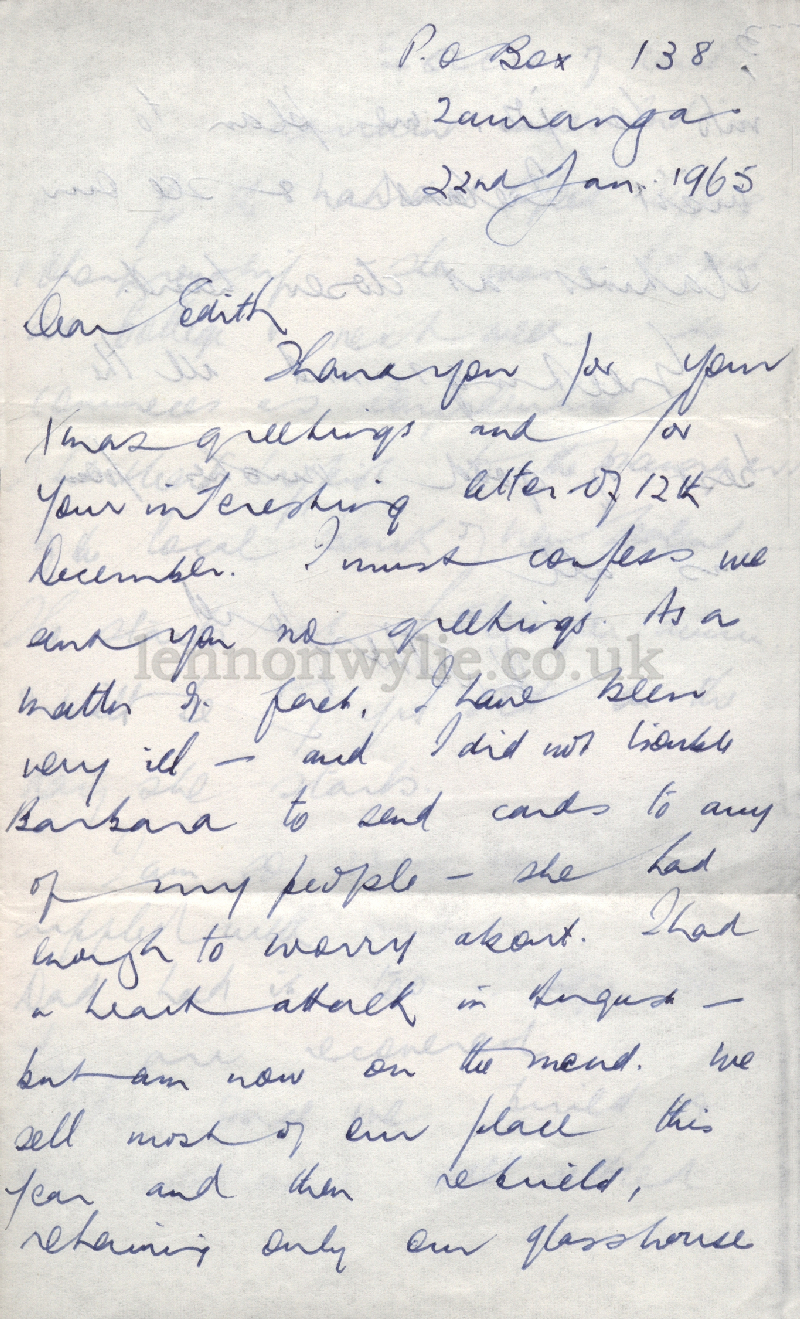 P.O Box 138.
Tauranga.
22nd Jan. 1965
Dear Edith
Thank you for your
Xmas greetings and for
your interesting letter of 12th
December. I must confess we
sent you no greetings. As a
matter of fact, I have been
very ill – and I did not trouble
Barbara to send cards to any
of my people – she had
enough to worry about. I had
a heart attack in August –
but am now on the mend. We
sell most of our place this
year and then rebuild,
retaining only our glasshouse
lennonwylie.co.uk